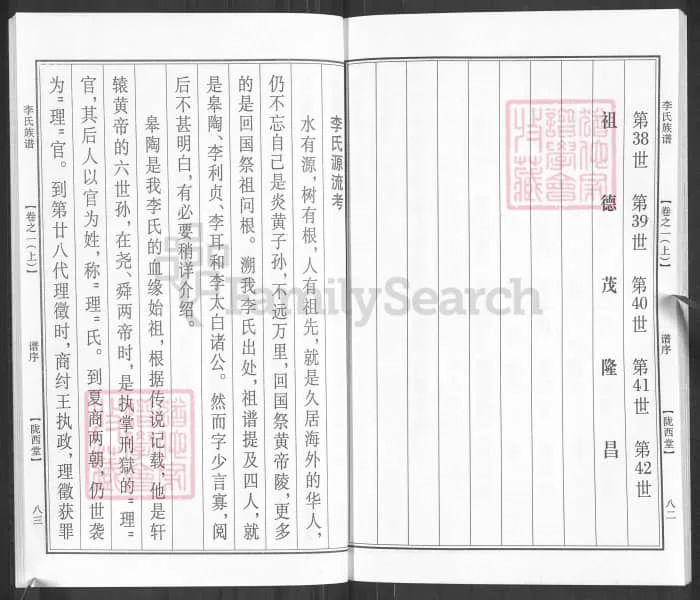 李氏族谱
【卷之一(上)】
谱序
【陇西堂】
八二
第38世 第39世 第40世 第41世 第42世
祖 德 茂 隆 昌
李氏源流考
水有源,树有根,人有祖先,就是久居海外的华人,
仍不忘自己是炎黄子孙,不远万里,回国祭黄帝陵,更多
的是回国祭祖问根。溯我李氏出处,祖谱提及四人,就
是皋陶、李利贞、李耳和李太白诸公。然而字少言寡,阅
后不甚明白,有必要稍详介绍。
皋陶是我李氏的血缘始祖,根据传说记载,他是轩
辕黄帝的六世孙,在尧、舜两帝时,是执掌刑獄的"理"
官,其后人以官为姓,称"理"氏。到夏商两朝,仍世袭
为"理"官。到第廿八代理徵时,商纣王执政,理徵获罪
李氏族谱
【卷之一(上)】
谱序
【陇西堂】
八三
FamilySearch